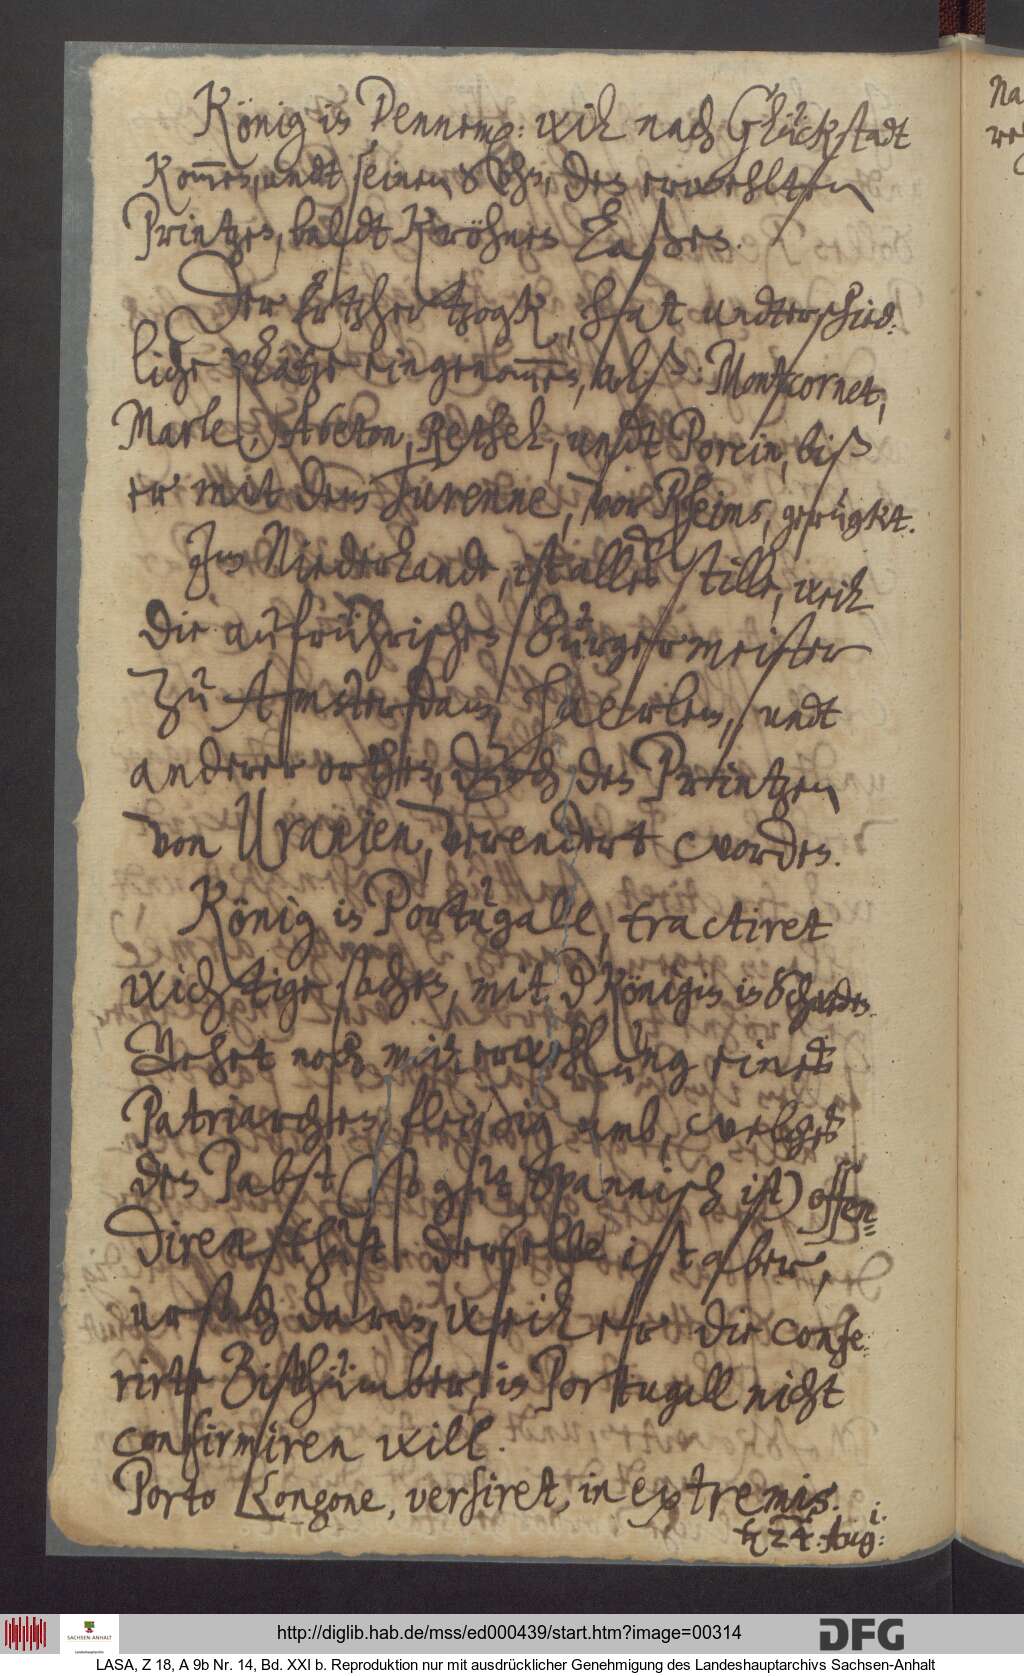 König in Dennemk: will nach Glückstadt
Kom̅en, undt seinen Sohn, den erwehlten
Printzen, baldt Kröhnen Laßen.
Der Ertzhertzogk, hat undterschied-
liche Plätze eingenom̅en, alß: Montcornet,
Marle, Abeton, Rethel, undt Porcin, biß
er mit dem Turenne, vor Rheims, gerügkt.
Im Niederlande, ist alles stille, weil
die aufrührischen Bürgermeister
zu Amsterdam, Haerlem, undt
anderer orthen, durch den Printzen
von Uranien, verendert worden.
König in Portugall, tractiret
wichtige sachen, mit d Königin in Schweden
Gehet noch mit erwehlung eines
Patriarchen, fleißig umb, welches
den Pabst (so gut Spannisch ist) offen-
diren thut derselbe ist aber,
ursach daran, weil er die confe-
rirte Bisthümber, in Portugall nicht
confirmiren will.
Porto Longone, versiret, in extremis.
24. Aug:
Na
http://diglib.hab.de/mss/ed000439/start.htm?image=00314
SACHSEN-ANHALT
Landeshauptarchiv
DFG
LASA, Z 18, A 9b Nr. 14, Bd. XXI b. Reproduktion nur mit ausdrücklicher Genehmigung des Landeshauptarchivs Sachsen-Anhalt